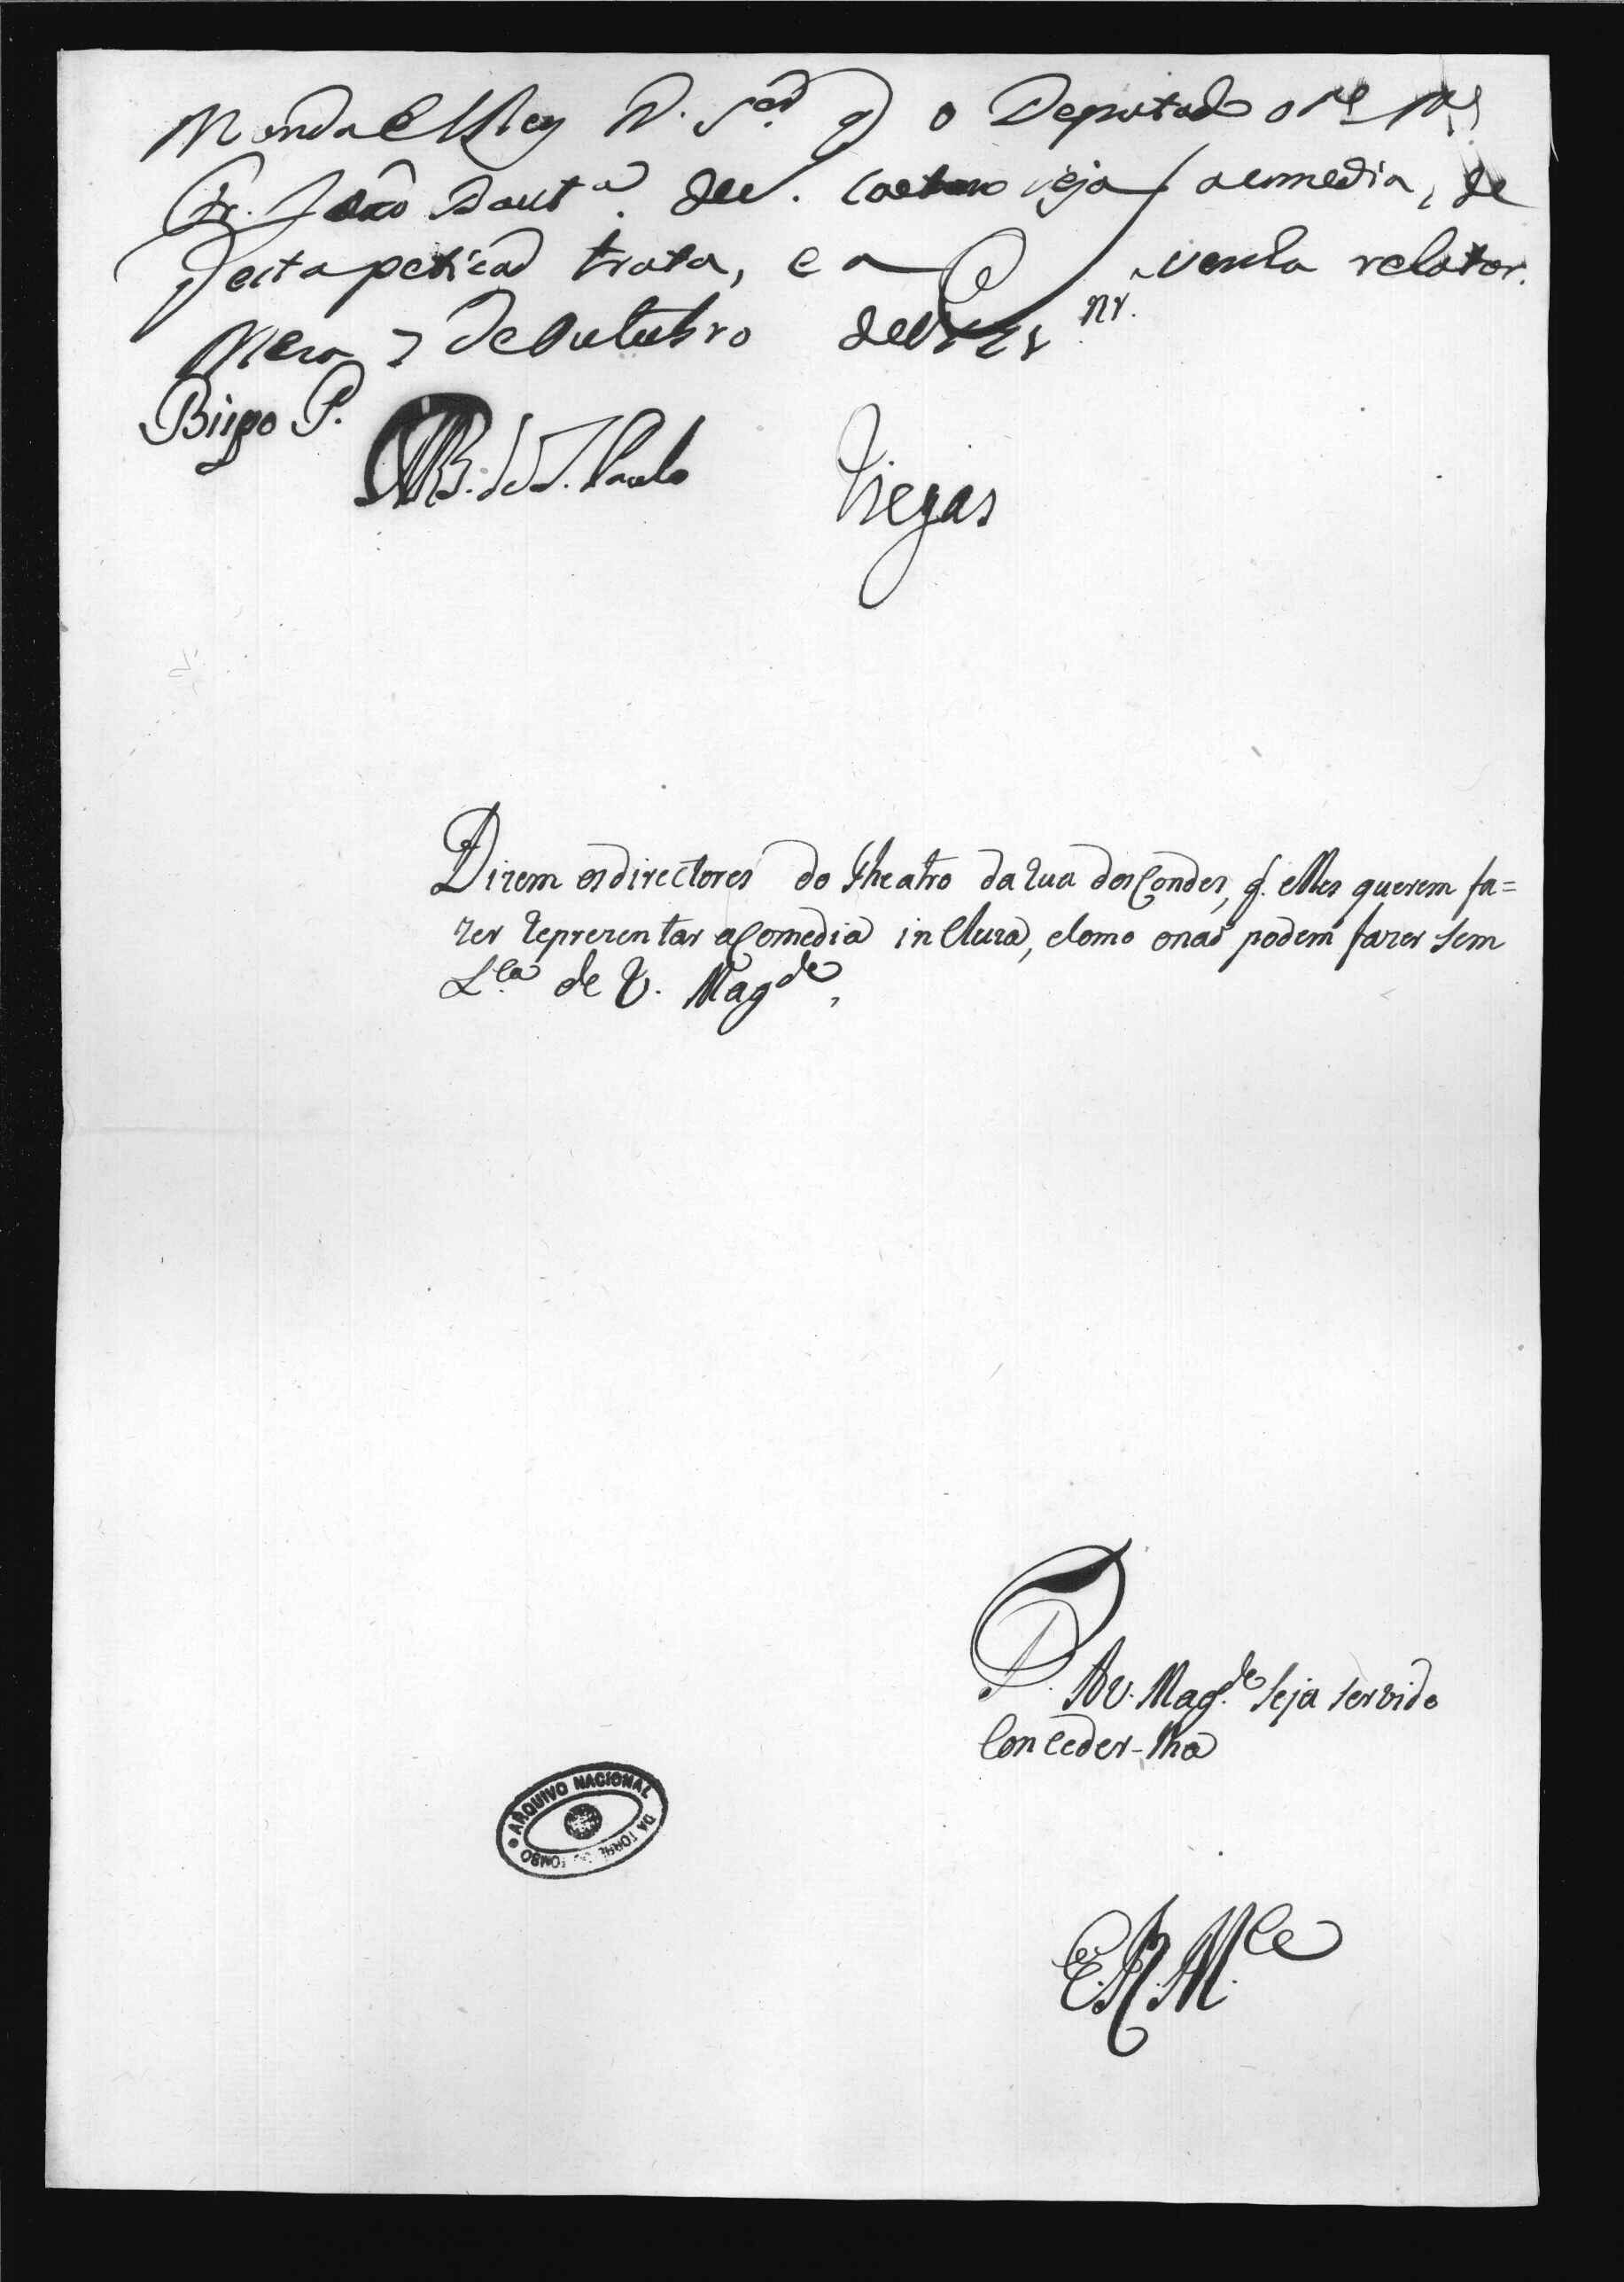 Manda ElRey N. S.or q o Deputado o P.e M.e
Fr. João Bautª. de S. Caetano veja a comedia, de
q esta petição trata, e a venha relatar.
Meza 7 de Outubro de
Bispo P.
B. de S. Paulo
Viegas
Dizem os directores do Theatro da Rua dos Condes, q. elles querem fa=
zer reprezentar a Comedia incluza, e como o naõ podem fazer sem
L.ca de V. Mag.de,
P. A V. Mag.de seja servido
conceder-lha
E. R. M.ce
ARQUIVO NACIONAL DA TORRE DO TOMBO